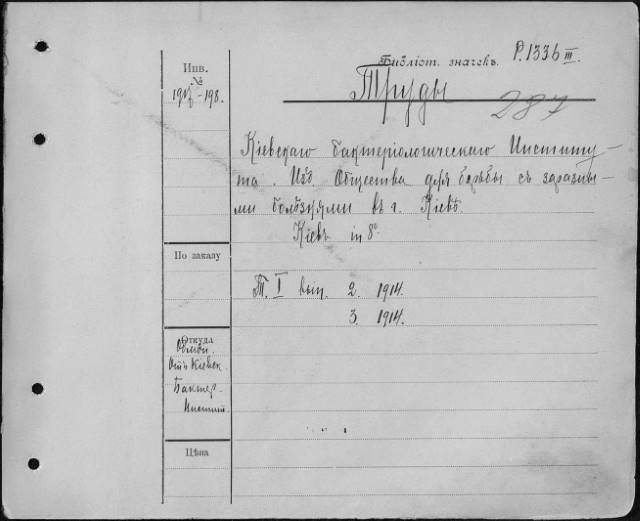 Библіот. значекъ. P.1336 III.
Инв.
№
1917-198.
Труды
287
Кіевскаго Бактеріологическаго Институ-
та. Изд. Общества для борьбы съ заразны-
ми болѣзнями въ г. Кіевѣ.
Кіевъ in 8°
По заказу
Т. I вып. 2. 1914.
3. 1914.
Откуда
Обмѣн.
Отъ Кіевск.
Бактер.
Инстит.
Цѣна